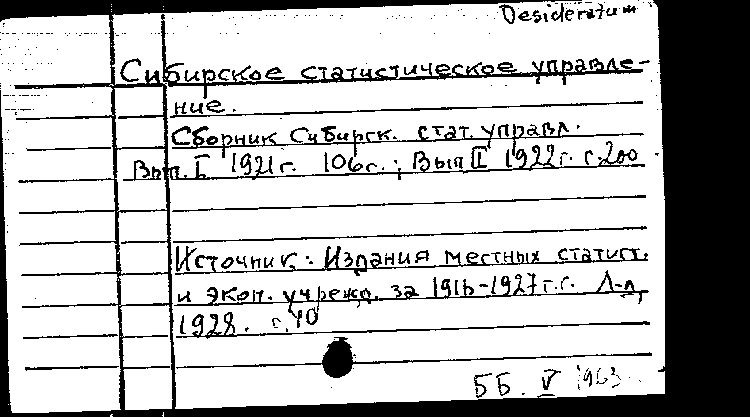 Desideratum
Сибирское статистическое управле-
ние.
Сборник Сибирск. стат. управл.
Вып. I 1921г. 106с.; Вып II 1922г. с.200
Источник: Издания местных статист.
и экон. учрежд. за 1916-1927г.г. Л-д,
1928. с.40
ББ. V 1963